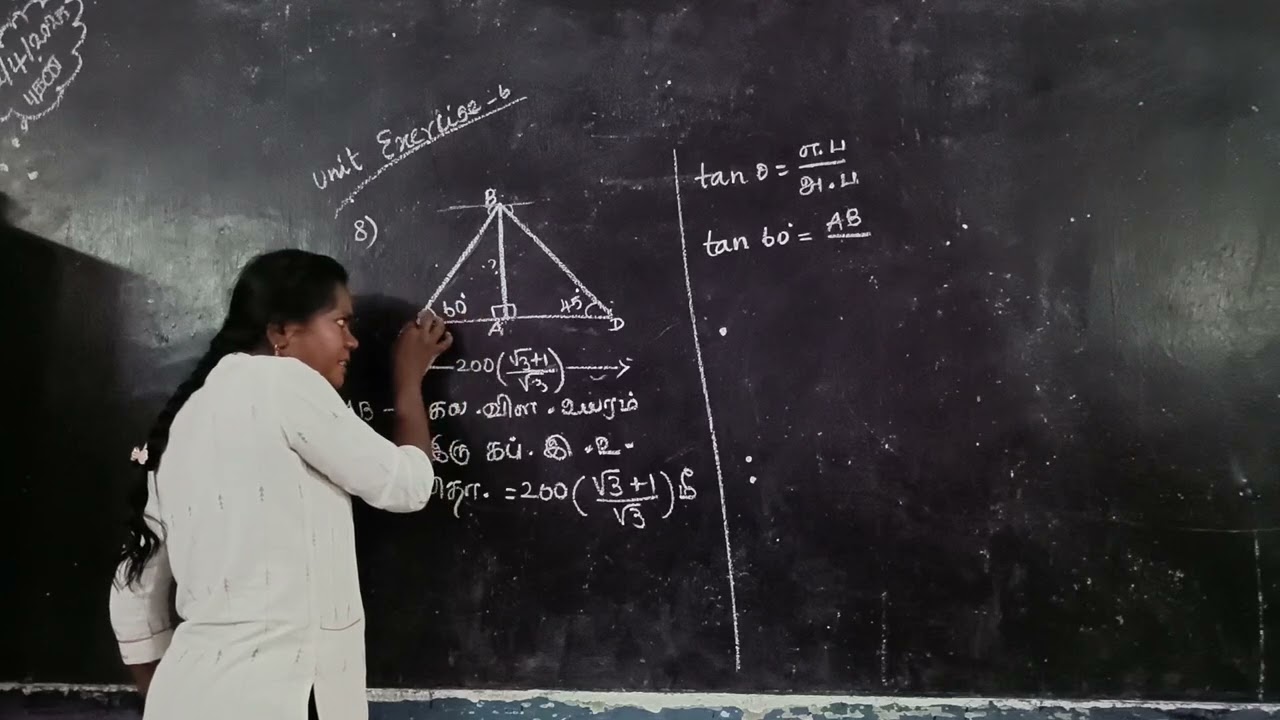 /4/2025
Unit Exercise-6
8)
B
?
60°
45°
A
D
200(√3+1/√3)
AB - கல.விள.உயரம்
இரு கப்.இ.உ-
தொ. = 200(√3+1/√3)மீ
tan θ = எ.ப/அ.ப
tan 60° = AB